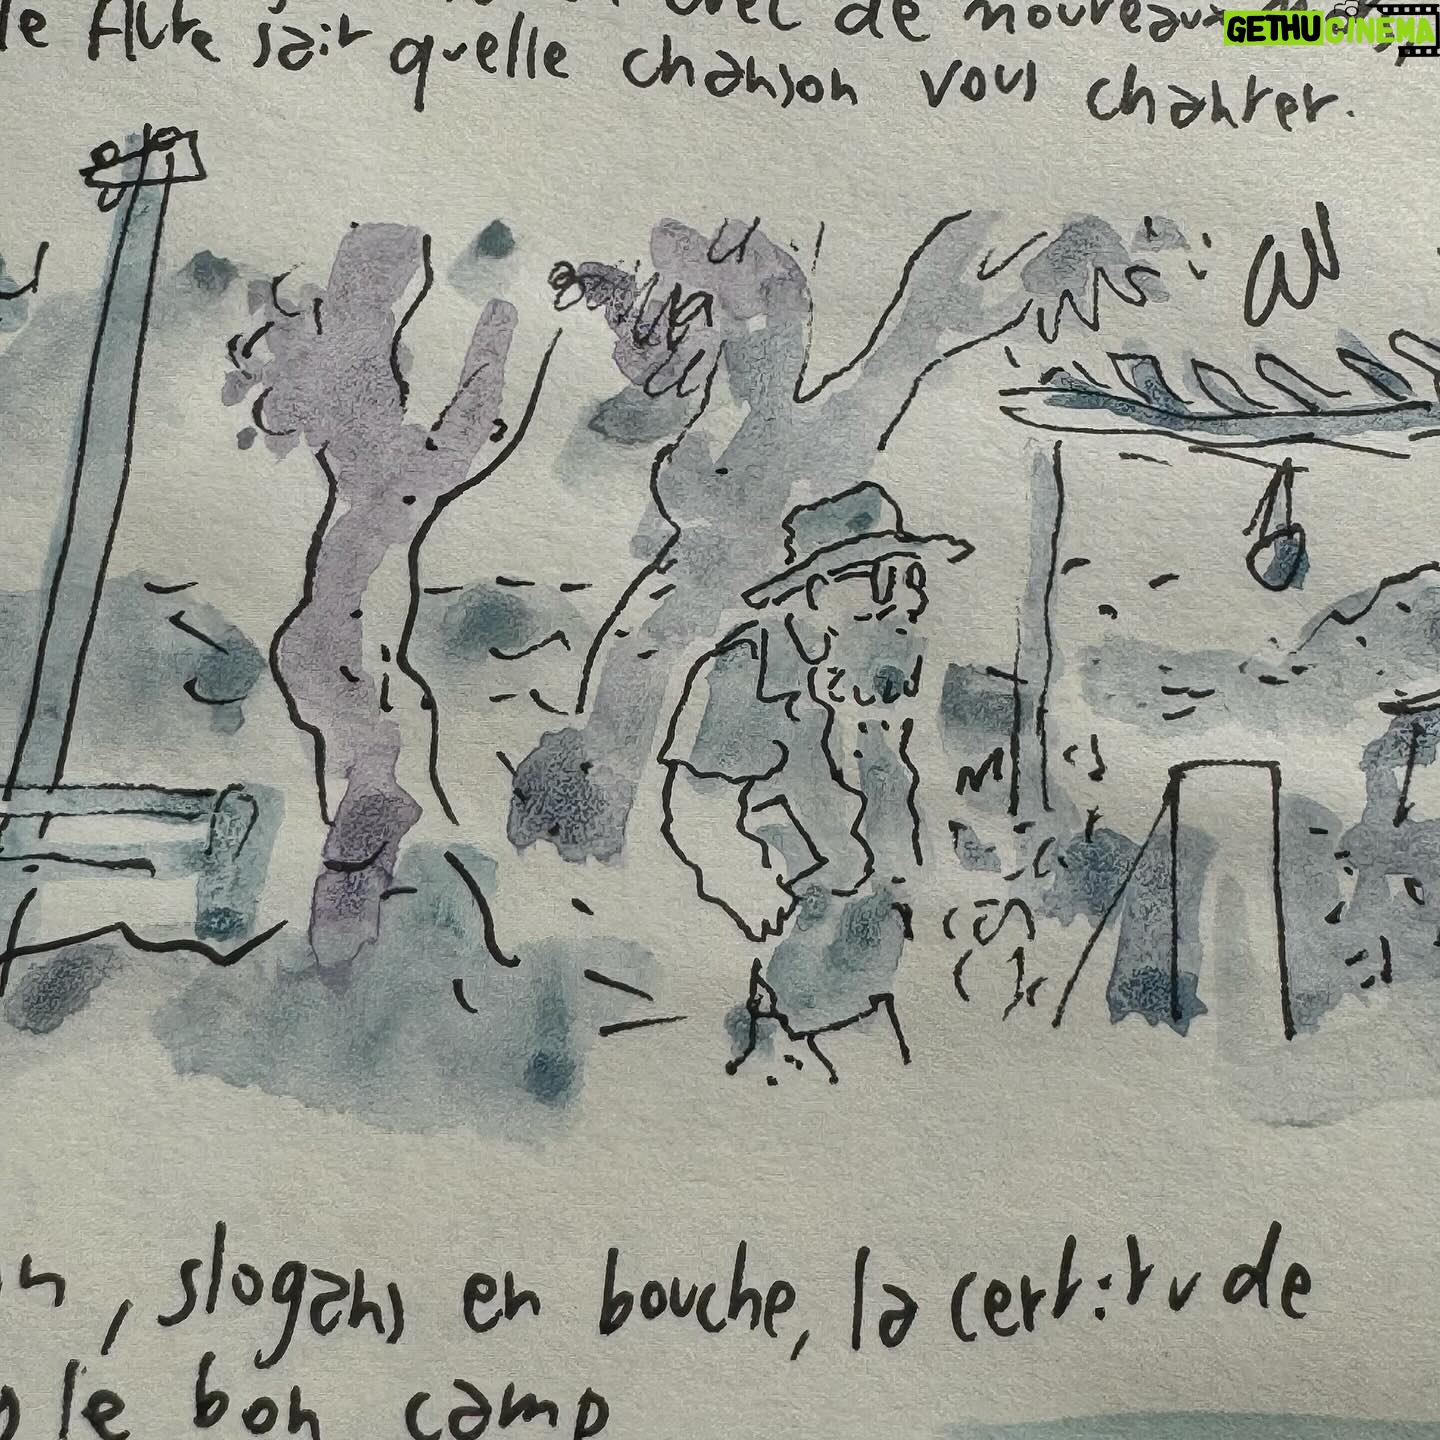 de nouveaux
le Flûte sait quelle chanson vous chanter.
GETHUCINEMA
, slogans en bouche, la certitude
le bon camp